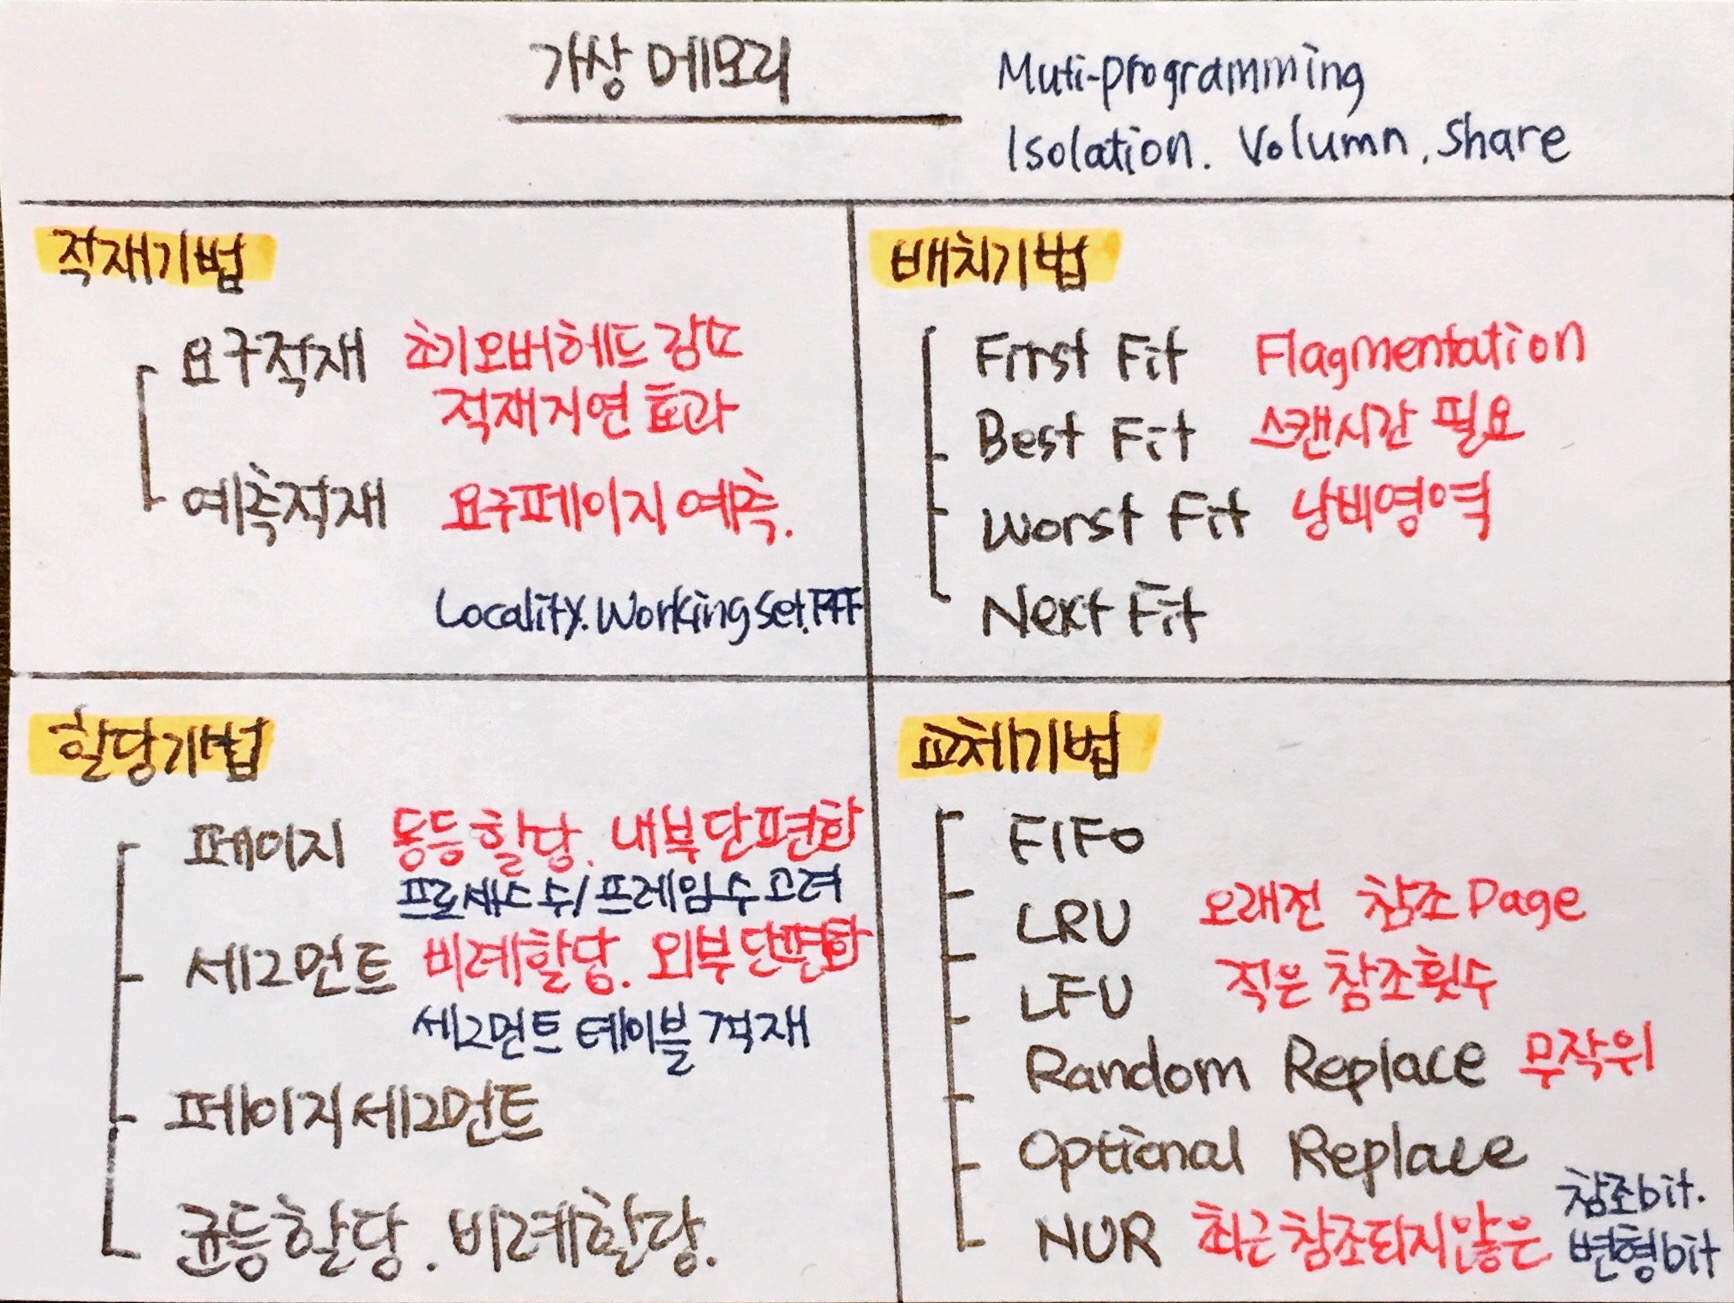 가상 메모리
Muti-programming
Isolation. Volumn. Share
적재기법
요구적재 초기오버헤드 감소
적재지연 효과
예측적재 요구페이지 예측.
Locality. Working set. PFF
배치기법
First Fit Flagmentation
Best Fit 스캔시간 필요
Worst Fit 낭비영역
Next Fit
할당기법
페이지 동등할당. 내부단편화
프로세스 수/프레임수 고려
세그먼트 비례할당. 외부단편화
세그먼트 테이블 적재
페이지 세그먼트
균등할당. 비례할당.
교체기법
FIFO
LRU 오래전 참조 Page
LFU 적은 참조횟수
Random Replace 무작위
Optional Replace
NUR 최근 참조되지않은 참조bit.
변형bit